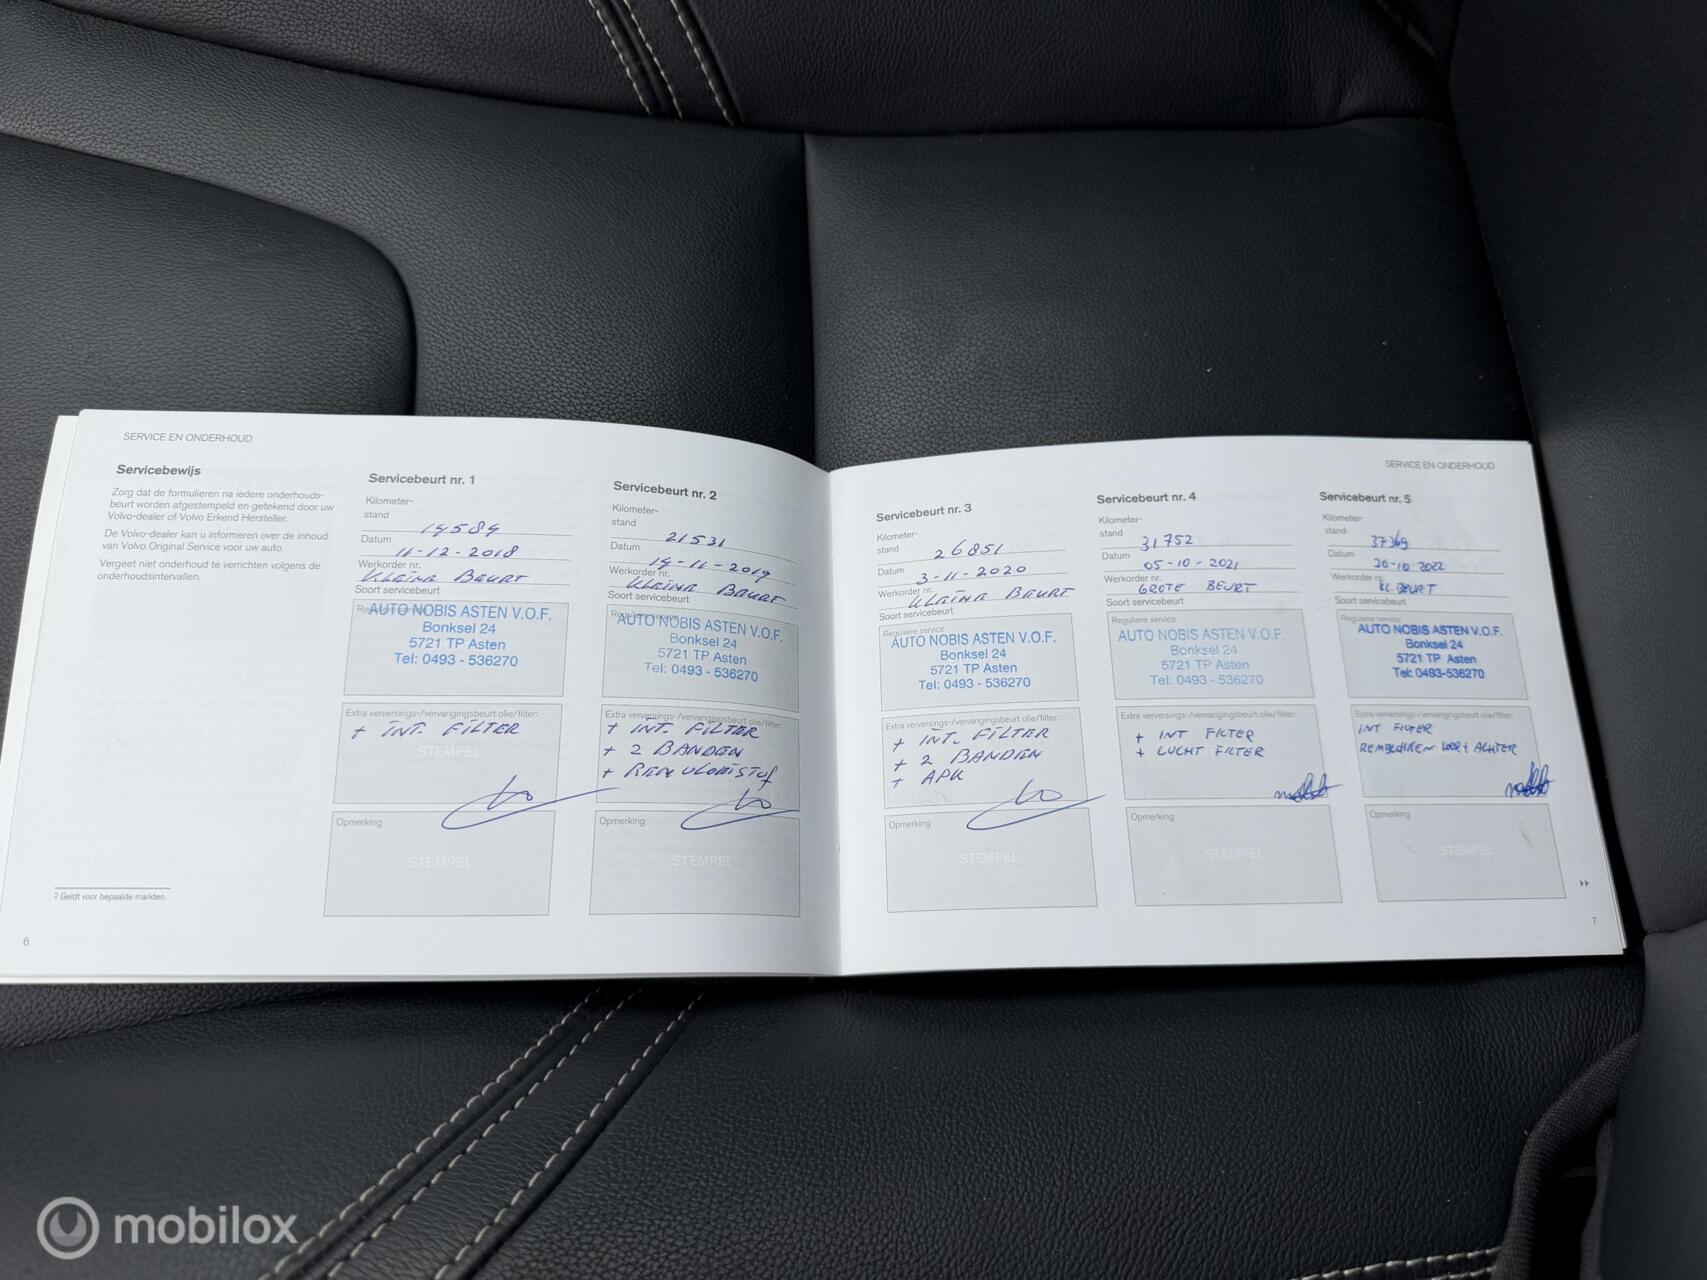 SERVICE EN ONDERHOUD
Servicebewijs
Zorg dat de formulieren na iedere onderhouds-
beurt worden afgestempeld en getekend door uw
Volvo-dealer of Volvo Erkend Hersteller.
De Volvo-dealer kan u informeren over de inhoud
van Volvo Original Service voor uw auto.
Vergeet niet onderhoud te verrichten volgens de
onderhoudsintervallen.
2 Geldt voor bepaalde markten.
6
Servicebeurt nr. 1
Kilometer-
stand
14584
Datum
11-12-2018
Werkorder nr.
KLEINE BEURT
Soort servicebeurt
Reguliere service
AUTO NOBIS ASTEN V.O.F.
Bonksel 24
5721 TP Asten
Tel: 0493 - 536270
Extra verversings-/vervangingsbeurt olie/filter:
+ INT. FILTER
STEMPEL
Opmerking
STEMPEL
Servicebeurt nr. 2
Kilometer-
stand
21531
Datum
14-11-2019
Werkorder nr.
KLEINE BEURT
Soort servicebeurt
Reguliere service
AUTO NOBIS ASTEN V.O.F.
Bonksel 24
5721 TP Asten
Tel: 0493 - 536270
Extra verversings-/vervangingsbeurt olie/filter:
+ INT. FILTER
+ 2 BANDEN
+ REMVLOEISTOF
Opmerking
STEMPEL
SERVICE EN ONDERHOUD
Servicebeurt nr. 3
Kilometer-
stand
26851
Datum
3-11-2020
Werkorder nr.
KLEINE BEURT
Soort servicebeurt
Reguliere service
AUTO NOBIS ASTEN V.O.F.
Bonksel 24
5721 TP Asten
Tel: 0493 - 536270
Extra verversings-/vervangingsbeurt olie/filter:
+ INT. FILTER
+ 2 BANDEN
+ APK
Opmerking
STEMPEL
Servicebeurt nr. 4
Kilometer-
stand
31752
Datum
05-10-2021
Werkorder nr.
GROTE BEURT
Soort servicebeurt
Reguliere service
AUTO NOBIS ASTEN V.O.F.
Bonksel 24
5721 TP Asten
Tel: 0493 - 536270
Extra verversings-/vervangingsbeurt olie/filter:
+ INT FILTER
+ LUCHT FILTER
Opmerking
STEMPEL
Servicebeurt nr. 5
Kilometer-
stand
37369
Datum
20-10-2022
Werkorder nr.
KL. BEURT
Soort servicebeurt
Reguliere service
AUTO NOBIS ASTEN V.O.F.
Bonksel 24
5721 TP Asten
Tel: 0493-536270
Extra verversings-/vervangingsbeurt olie/filter:
INT FILTER
REMBLOKKEN VOOR + ACHTER
Opmerking
STEMPEL
7
mobilox